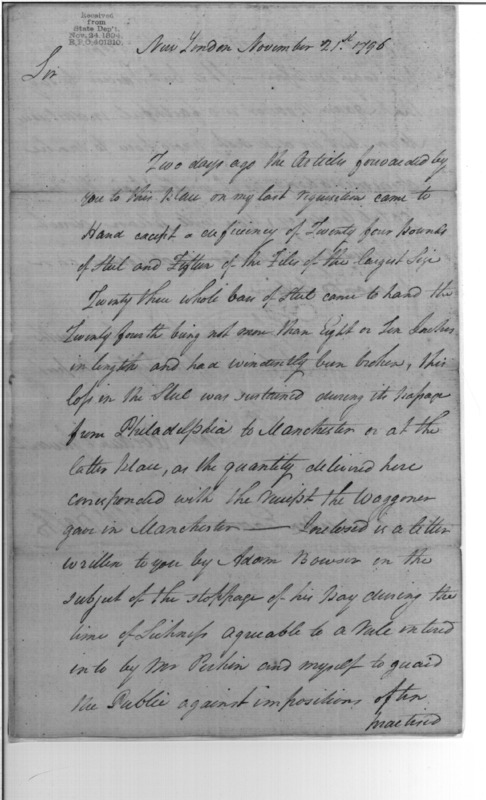 Received
from
State Dep't.
Nov. 24, 1894
R.P.O. 401910.
New London November 21st 1796
Sir
Two days ago the Articles forwarded by
you to this Place on my last requisition came to
Hand except a deficiency of Twenty four pounds
of Steel and Fifteen of the Files of the largest Size
Twenty three whole bars of Steel came to hand the
Twenty fourth being not more than Eight or Ten Inches
in length and had evidently been broken, this
loss in the Steel was sustained during its passage
from Philadelphia to Manchester or at the
latter Place, as the quantity delivered here
corresponded with the receipt the Waggoner
gave in Manchester — Inclosed is a letter
written to you by Adam Bowser on the
subject of the stoppage of his Pay during the
time of Sickness agreable to a Rule entered
into by Mr Perkin and myself to guard
the Public against impositions often
practised